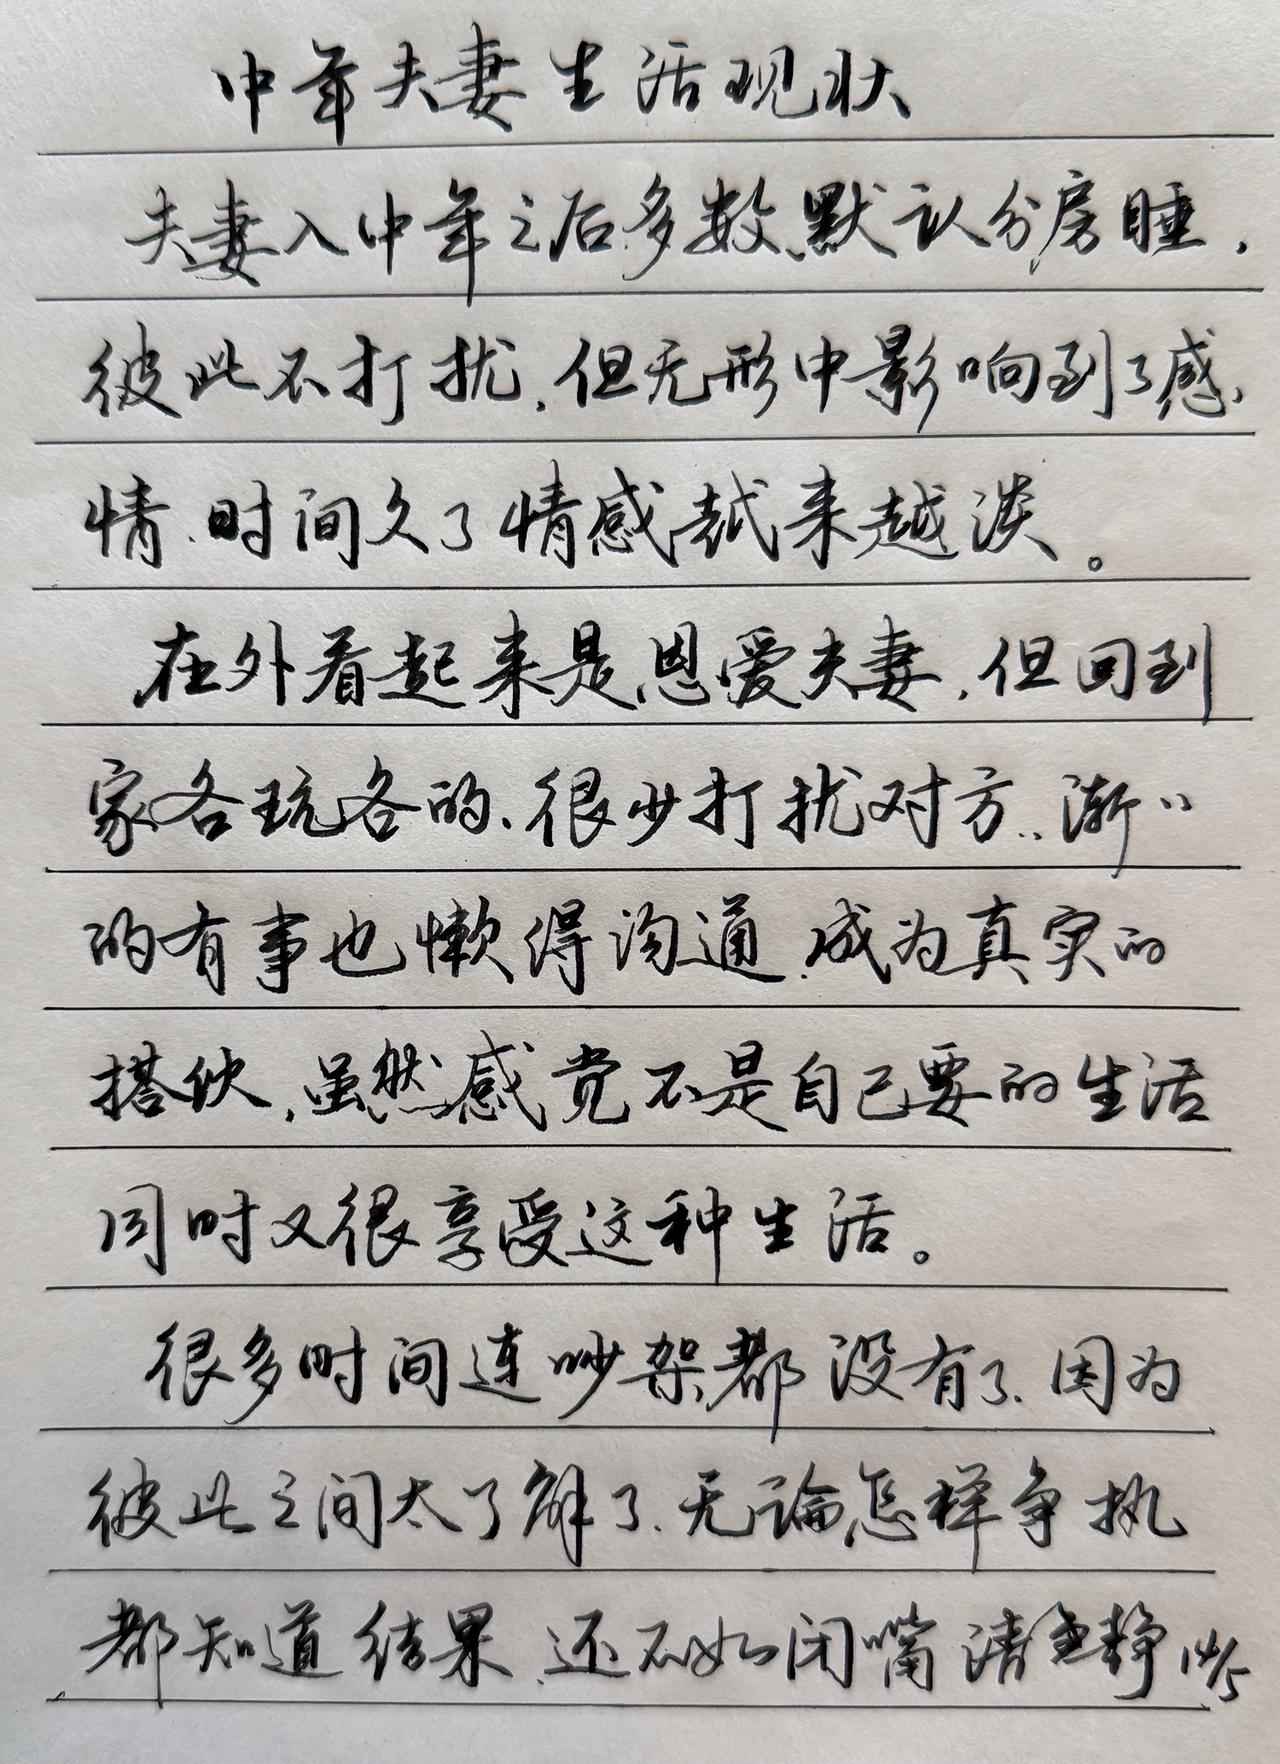 中年夫妻生活现状
夫妻入中年之后多数默认分房睡,
彼此不打扰,但无形中影响到了感
情、时间久了情感越来越淡。
在外看起来是恩爱夫妻,但回到
家各玩各的、很少打扰对方..渐〃
的有事也懒得沟通、成为真实的
搭伙,虽然感觉不是自己要的生活
同时又很享受这种生活。
很多时间连吵架都没有了、因为
彼此之间太了解了、无论怎样争执
都知道结果、还不如闭嘴清静